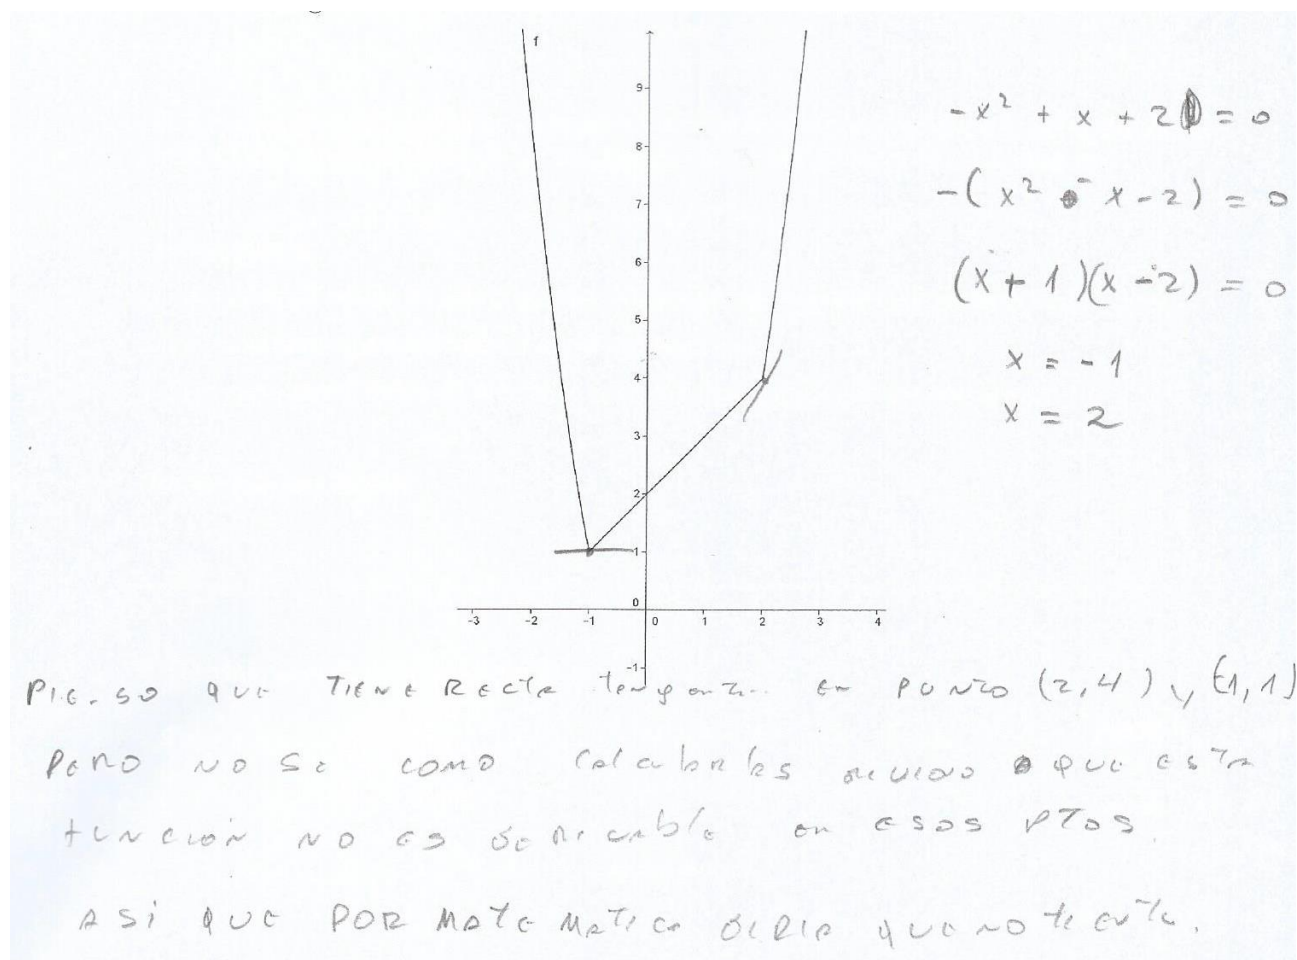 f
9
8
7
6
5
4
3
2
1
0
-1
-3 -2 -1 0 1 2 3 4
-x² + x + 2 = 0
-(x² - x - 2) = 0
(x + 1)(x - 2) = 0
x = -1
x = 2
PIENSO QUE TIENE RECTA tangente EN PUNTO (2,4) y (-1,1)
PERO NO SE COMO QUE ESTA
FUNCIÓN NO ES DERIVABLE en ESOS PTOS.
ASI QUE POR MATEMATICA DIRIA QUE NO